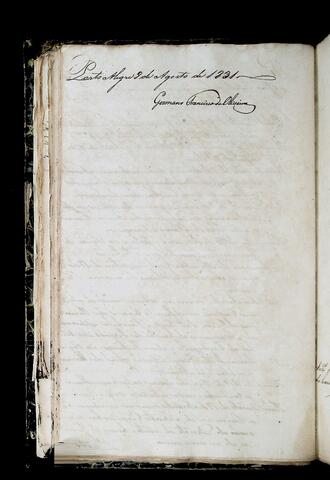 Porto Alegre 9 de Agosto de 1831
Germano Francisco de Oliveira